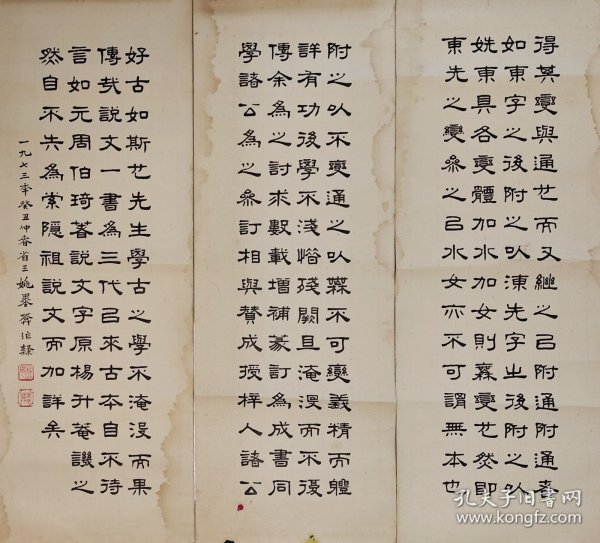 得其變與通也而又繼之㠯附通附通者
如東字之後附之以涷先字之後附之以
姺東具各變體加水加女則寡變也然即
東先之變參之㠯水女亦不可謂無本也
附之以不變通之以無不可變義精而體
詳有功後學不淺惜殘闕且淹沒而不復
傳余為之討求數載增補篆訂為成書同
學諸公為之參訂相與贊成授梓人諸公
好古如斯也先生學古之學不淹沒而果
傳哉說文一書為三代㠯來古本自不待
言如元周伯琦著說文字原楊升菴譏之
然自不失為索隱祖說文而加詳矣
一九七三年癸丑仲春省三姚
作隸
孔夫子旧书网
www.kongfz.com